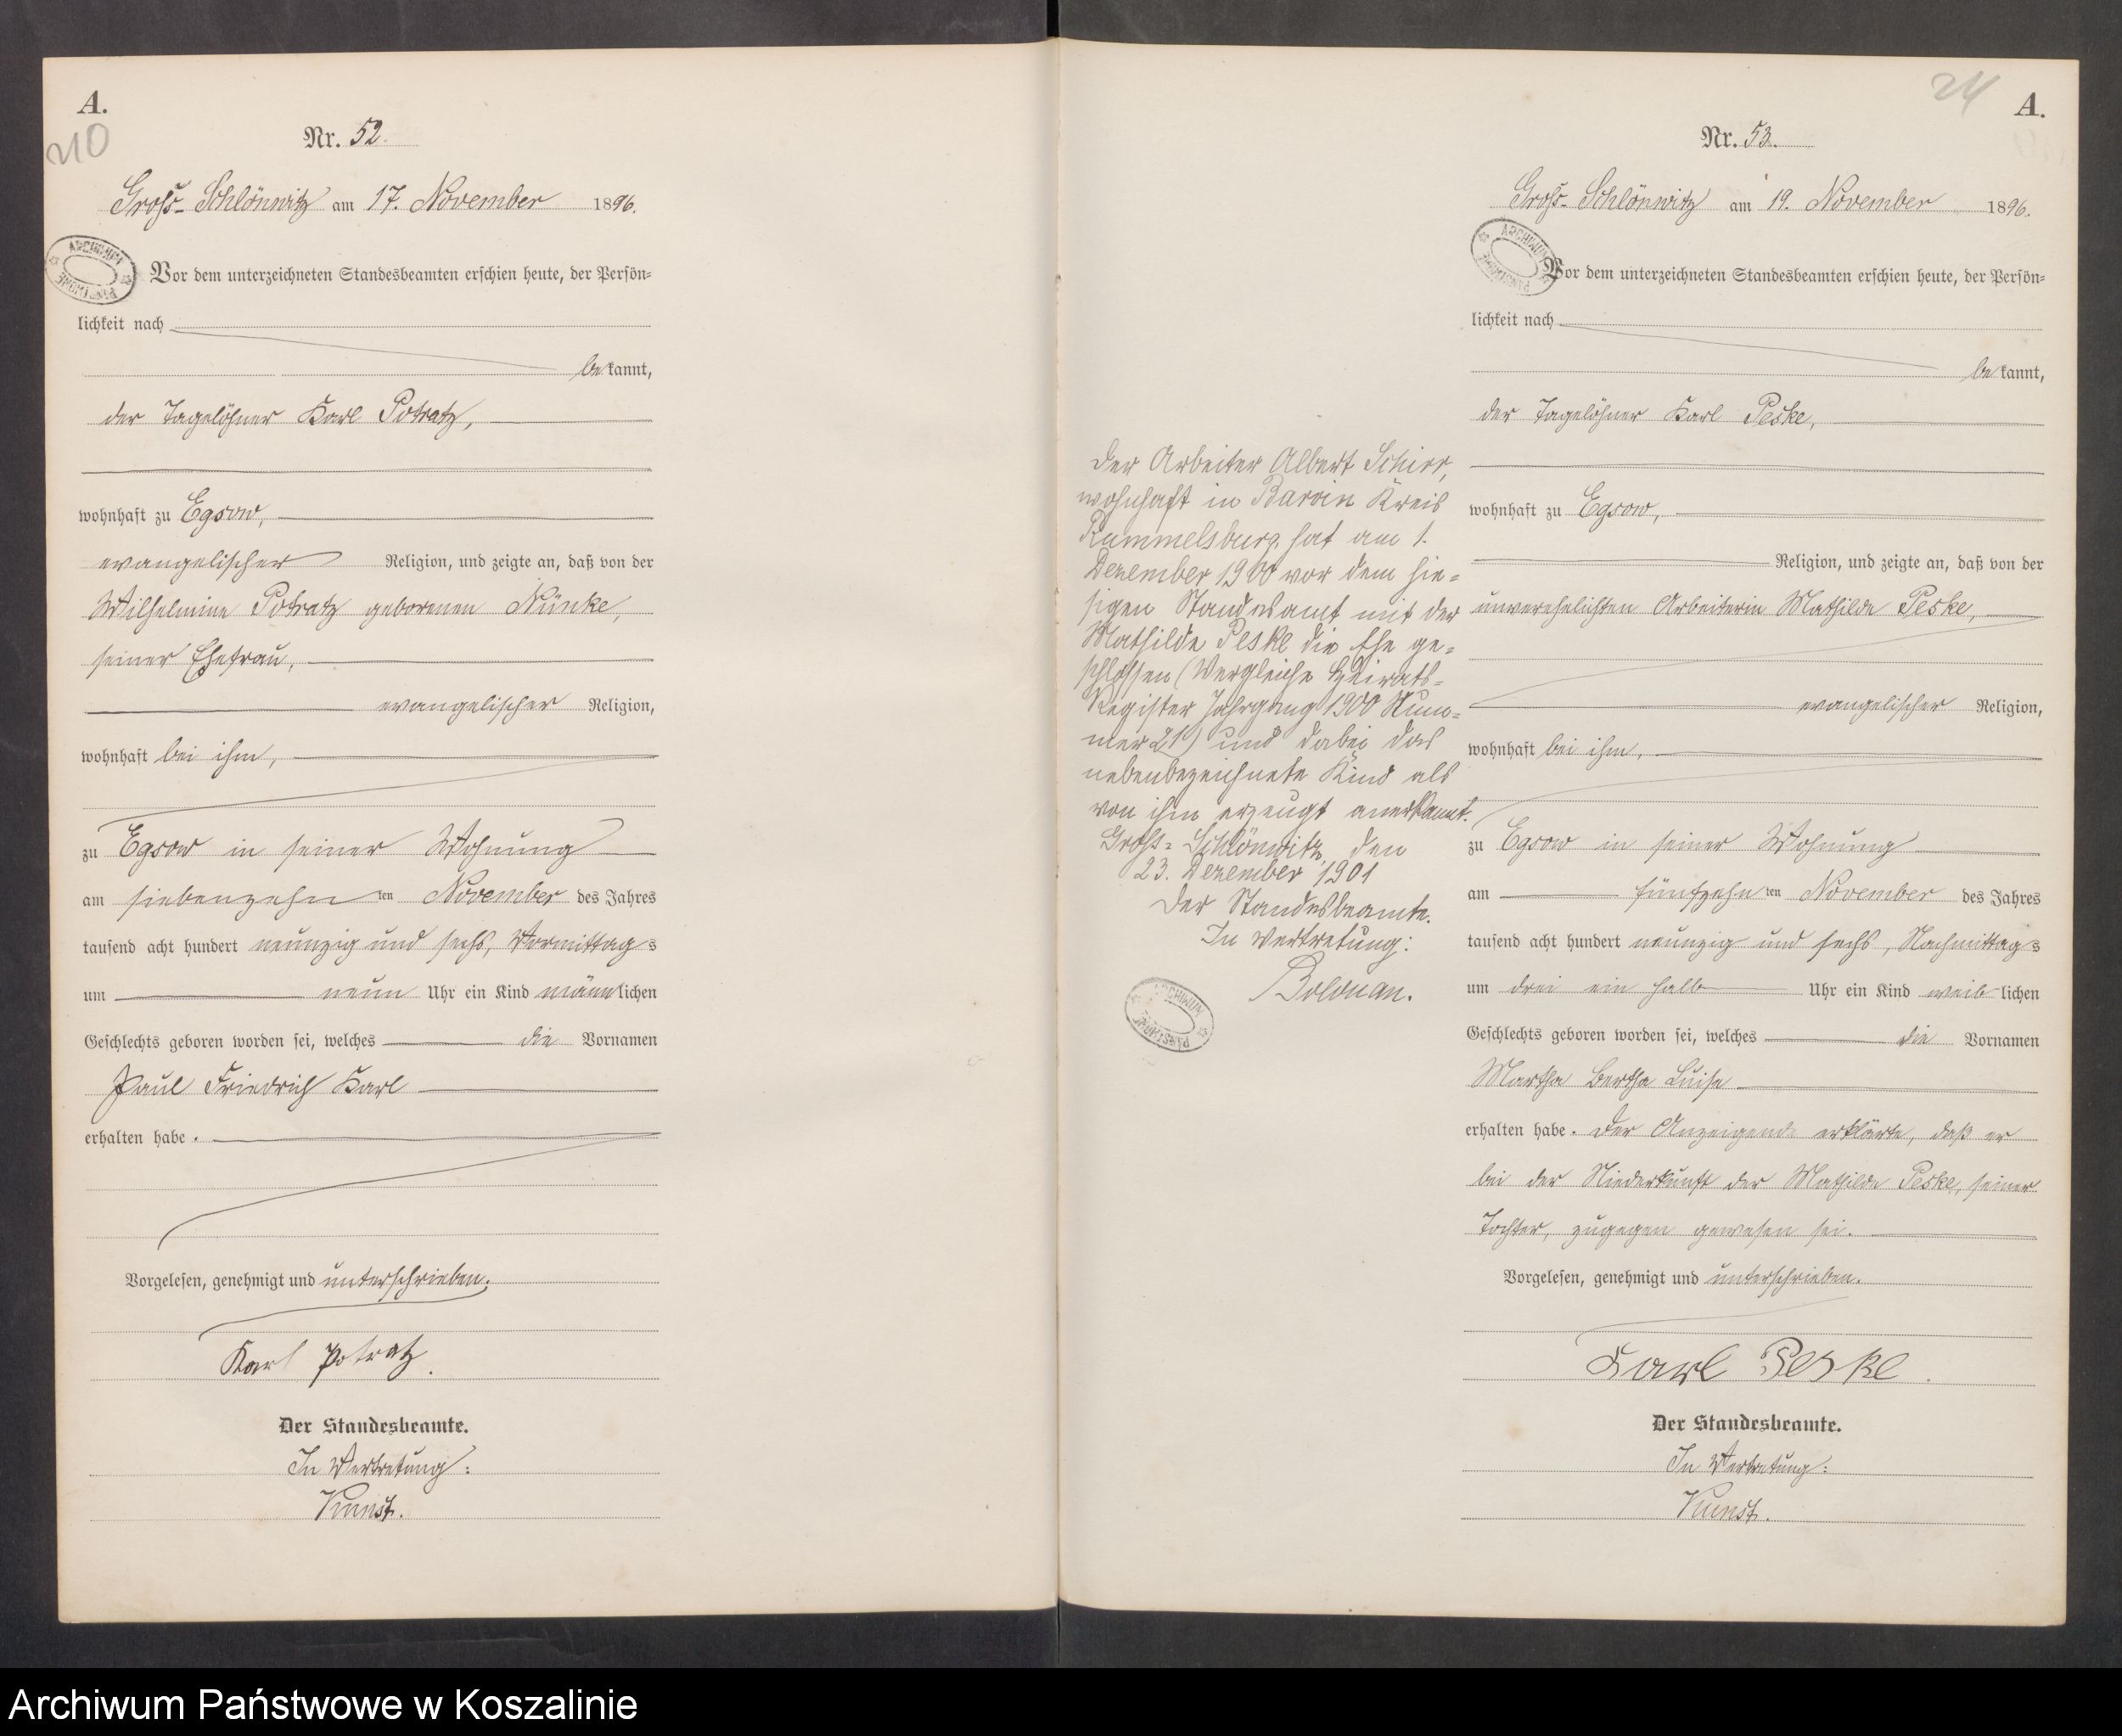 A.
210
Nr. 52.
Gross-Schlönwitz am 17. November 1896.
ARCHIWUM PAŃSTWOWE
Vor dem unterzeichneten Standesbeamten erschien heute, der Persön=
lichkeit nach
bekannt,
der Tagelöhner Karl Potratz,
wohnhaft zu Egsow,
evangelischer Religion, und zeigte an, daß von der
Wilhelmine Potratz geborenen Nünke,
seiner Ehefrau,
evangelischer Religion,
wohnhaft bei ihm,
zu Egsow in seiner Wohnung
am siebenzehn ten November des Jahres
tausend acht hundert neunzig und sechs, Vormittags
um neun Uhr ein Kind männlichen
Geschlechts geboren worden sei, welches die Vornamen
Paul Friedrich Karl
erhalten habe.
Vorgelesen, genehmigt und unterschrieben.
Karl Potratz.
Der Standesbeamte.
In Vertretung:
Kunst.
24
A.
Nr. 53.
Gross-Schlönwitz am 19. November 1896.
ARCHIWUM PAŃSTWOWE
Vor dem unterzeichneten Standesbeamten erschien heute, der Persön=
lichkeit nach
bekannt,
der Tagelöhner Karl Peske,
wohnhaft zu Egsow,
Religion, und zeigte an, daß von der
unverehelichten Arbeiterin Mathilde Peske,
evangelischer Religion,
wohnhaft bei ihm,
zu Egsow in seiner Wohnung
am fünfzehn ten November des Jahres
tausend acht hundert neunzig und sechs, Nachmittags
um drei ein halb Uhr ein Kind weiblichen
Geschlechts geboren worden sei, welches die Vornamen
Martha Bertha Luise
erhalten habe. Der Anzeigende erklärte, daß er
bei der Niederkunft der Mathilde Peske, seiner
Tochter, zugegen gewesen sei.
Vorgelesen, genehmigt und unterschrieben.
Karl Peske.
Der Standesbeamte.
In Vertretung:
Kunst.
Der Arbeiter Albert Schirr,
wohnhaft in Barvin Kreis
Rummelsburg hat am 1.
Dezember 1900 vor dem hie=
sigen Standesamt mit der
Mathilde Peske die Ehe ge=
schlossen (Vergleiche Heirats=
Register Jahrgang 1900 Num=
mer 21) und dabei das
nebenbezeichnete Kind als
von ihm erzeugt anerkannt.
Gross=Schlönwitz, den
23. Dezember 1901
Der Standesbeamte.
In Vertretung:
ARCHIWUM PAŃSTWOWE
Archiwum Państwowe w Koszalinie